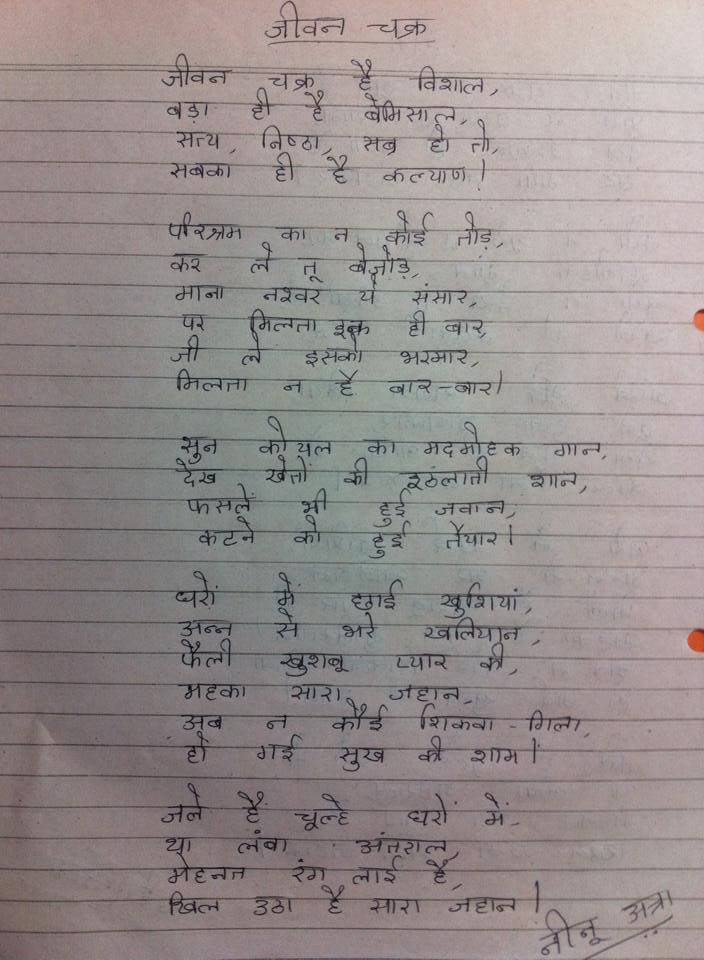 जीवन चक्र
जीवन चक्र है विशाल,
बड़ा ही है बेमिसाल,
सत्य, निष्ठा, सब्र हो तो,
सबका ही है कल्याण!
परिश्रम का न कोई तोड़,
कर ले तू बेजोड़,
माना नश्वर ये संसार,
पर मिलता इक ही बार,
जी ले इसको भरमार,
मिलता न है बार-बार।
सुन कोयल का मदमोहक गान,
देख खेतों की इठंलाती शान,
फसलें भी हुई जवान,
कटने को हुई तैयार।
घरों में छाई खुशियां,
अन्न से भरे खलियान,
फैली खुशबू प्यार की,
महका सारा जहान,
अब न कोई शिकवा-गिला,
हो गई सुख की शाम।
जले हैं चूल्हे घरों में,
था लंबा अंतराल,
मेहनत रंग लाई है,
खिल उठा है सारा जहान!
नीनू अत्रा